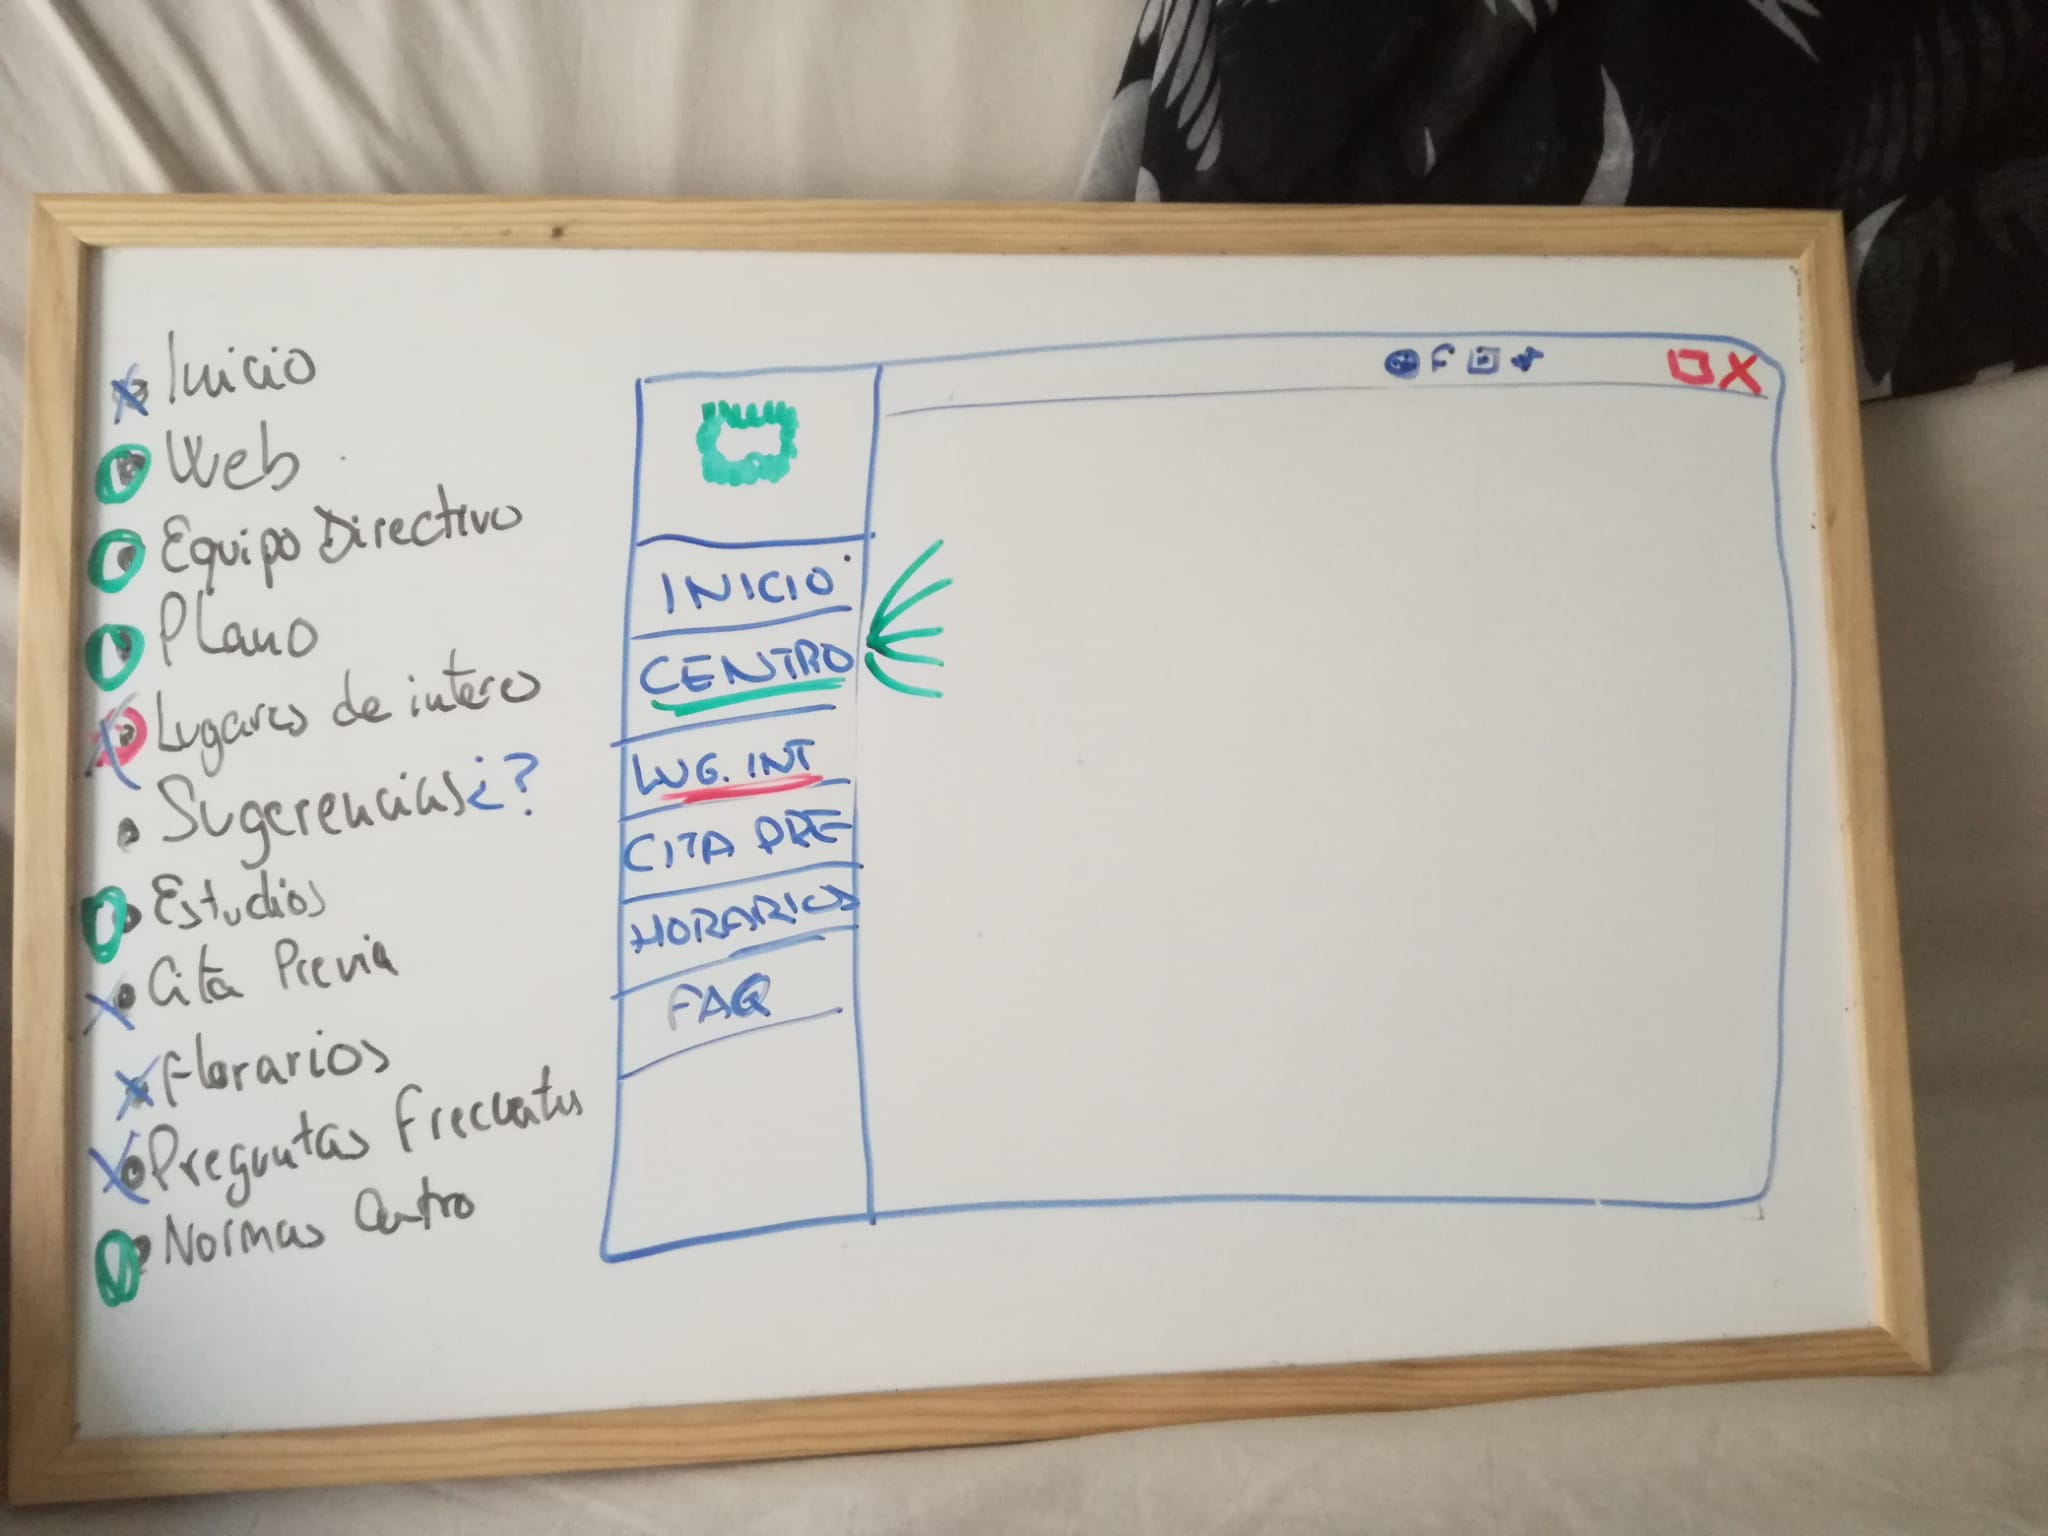 Inicio
Web
Equipo Directivo
Plano
Lugares de interes
Sugerencias ¿?
Estudios
Cita Previa
Horarios
Preguntas Frecuentes
Normas Centro
INICIO
CENTRO
LUG. INT
CITA PRE
HORARIOS
FAQ